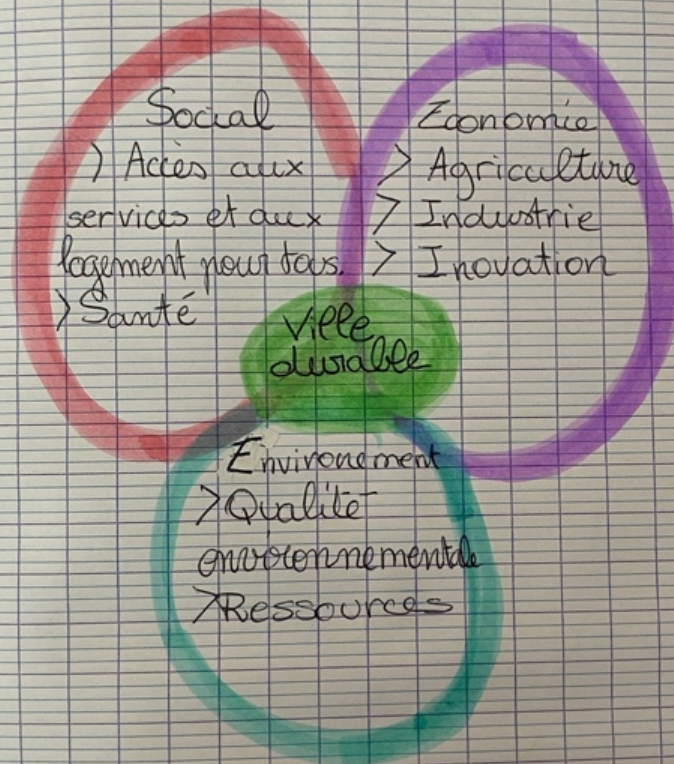 Social
> Accès aux
services et aux
logement pour tous.
> Santé
Economie
> Agriculture
> Industrie
> Inovation
Ville
durable
Environement
> Qualité
environnementale
> Ressources